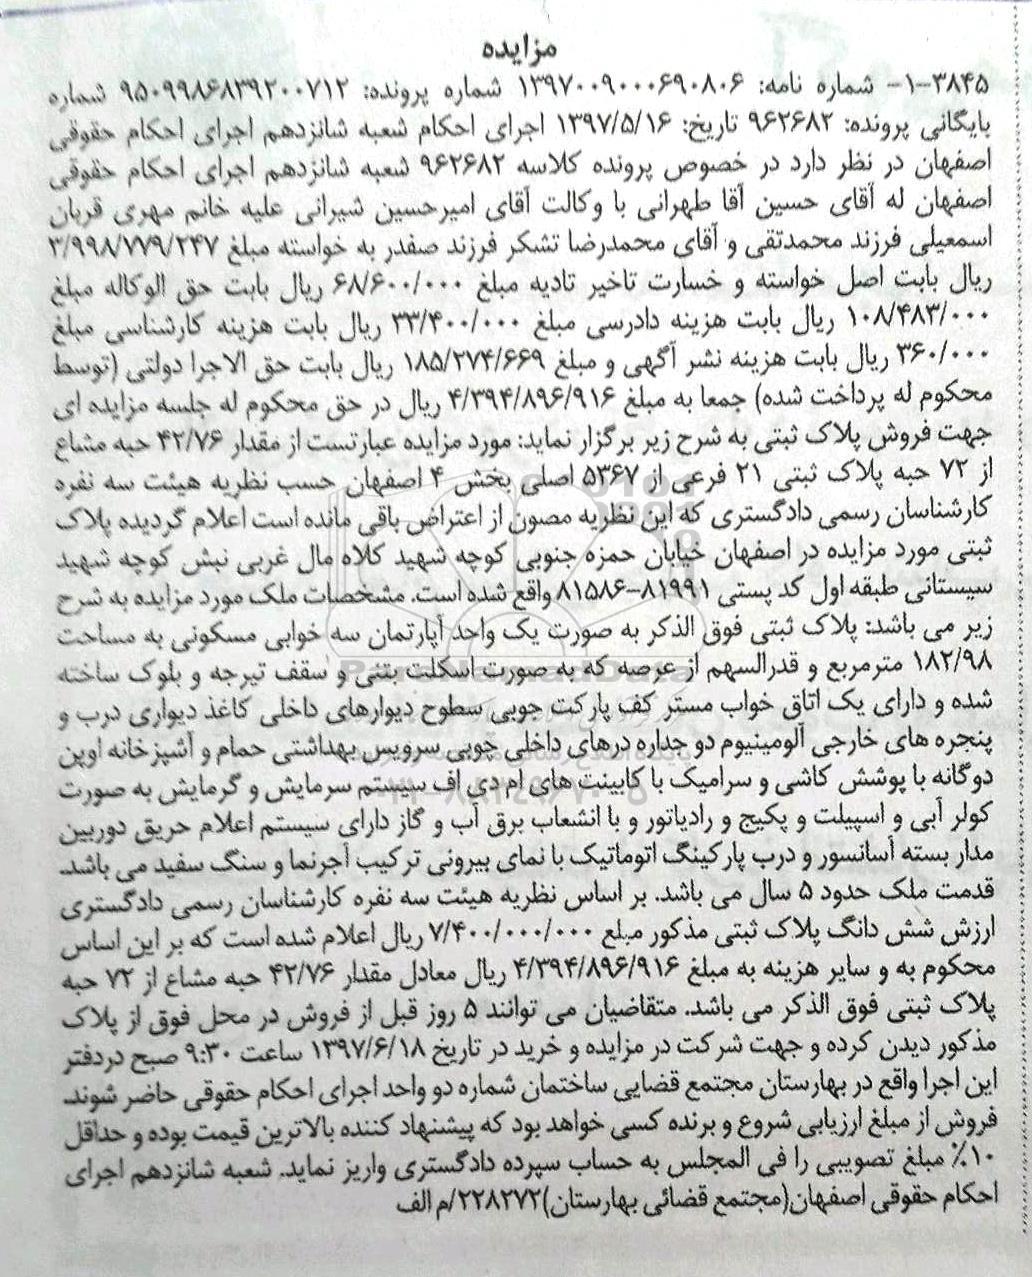 مزایده
۳۸۴۵-۱- شماره نامه: ۱۳۹۷۰۰۹۰۰۰۶۹۰۸۰۶ شماره پرونده: ۹۵۰۹۹۸۶۸۳۹۲۰۰۷۱۲ شماره
بایگانی پرونده: ۹۶۲۶۸۲ تاریخ: ۱۳۹۷/۵/۱۶ اجرای احکام شعبه شانزدهم اجرای احکام حقوقی
اصفهان در نظر دارد در خصوص پرونده کلاسه ۹۶۲۶۸۲ شعبه شانزدهم اجرای احکام حقوقی
اصفهان له آقای حسین آقا طهرانی با وکالت آقای امیرحسین شیرانی علیه خانم مهری قربان
اسمعیلی فرزند محمدتقی و آقای محمدرضا تشکر فرزند صفدر به خواسته مبلغ ۳/۹۹۸/۷۷۹/۲۴۷
ریال بابت اصل خواسته و خسارت تاخیر تادیه مبلغ ۶۸/۶۰۰/۰۰۰ ریال بابت حق الوکاله مبلغ
۱۰۸/۴۸۳/۰۰۰ ریال بابت هزینه دادرسی مبلغ ۳۳/۴۰۰/۰۰۰ ریال بابت هزینه کارشناسی مبلغ
۳۶۰/۰۰۰ ریال بابت هزینه نشر آگهی و مبلغ ۱۸۵/۲۷۴/۶۶۹ ریال بابت حق الاجرا دولتی (توسط
محکوم له پرداخت شده) جمعا به مبلغ ۴/۳۹۴/۸۹۶/۹۱۶ ریال در حق محکوم له جلسه مزایده ای
جهت فروش پلاک ثبتی به شرح زیر برگزار نماید: مورد مزایده عبارتست از مقدار ۴۲/۷۶ حبه مشاع
از ۷۲ حبه پلاک ثبتی ۲۱ فرعی از ۵۳۶۷ اصلی بخش ۴ اصفهان حسب نظریه هیئت سه نفره
کارشناسان رسمی دادگستری که این نظریه مصون از اعتراض باقی مانده است اعلام گردیده پلاک
ثبتی مورد مزایده در اصفهان خیابان حمزه جنوبی کوچه شهید کلاه مال غربی نبش کوچه شهید
سیستانی طبقه اول کد پستی ۸۱۹۹۱-۸۱۵۸۶ واقع شده است. مشخصات ملک مورد مزایده به شرح
زیر می باشد: پلاک ثبتی فوق الذکر به صورت یک واحد آپارتمان سه خوابی مسکونی به مساحت
۱۸۲/۹۸ مترمربع و قدرالسهم از عرصه که به صورت اسکلت بتنی و سقف تیرچه و بلوک ساخته
شده و دارای یک اتاق خواب مستر کف پارکت چوبی سطوح دیوارهای داخلی کاغذ دیواری درب و
پنجره های خارجی آلومینیوم دو جداره درهای داخلی چوبی سرویس بهداشتی حمام و آشپزخانه اوپن
دوگانه با پوشش کاشی و سرامیک با کابینت های ام دی اف سیستم سرمایش و گرمایش به صورت
کولر آبی و اسپیلت و پکیج و رادیاتور و با انشعاب برق آب و گاز دارای سیستم اعلام حریق دوربین
مدار بسته آسانسور و درب پارکینگ اتوماتیک با نمای بیرونی ترکیب آجرنما و سنگ سفید می باشد.
قدمت ملک حدود ۵ سال می باشد. بر اساس نظریه هیئت سه نفره کارشناسان رسمی دادگستری
ارزش شش دانگ پلاک ثبتی مذکور مبلغ ۷/۴۰۰/۰۰۰/۰۰۰ ریال اعلام شده است که بر این اساس
محکوم به و سایر هزینه به مبلغ ۴/۳۹۴/۸۹۶/۹۱۶ ریال معادل مقدار ۴۲/۷۶ حبه مشاع از ۷۲ حبه
پلاک ثبتی فوق الذکر می باشد. متقاضیان می توانند ۵ روز قبل از فروش در محل فوق از پلاک
مذکور دیدن کرده و جهت شرکت در مزایده و خرید در تاریخ ۱۳۹۷/۶/۱۸ ساعت ۹:۳۰ صبح دردفتر
این اجرا واقع در بهارستان مجتمع قضایی ساختمان شماره دو واحد اجرای احکام حقوقی حاضر شوند.
فروش از مبلغ ارزیابی شروع و برنده کسی خواهد بود که پیشنهاد کننده بالاترین قیمت بوده و حداقل
۱۰٪ مبلغ تصویبی را فی المجلس به حساب سپرده دادگستری واریز نماید. شعبه شانزدهم اجرای
احکام حقوقی اصفهان(مجتمع قضائی بهارستان)۲۲۸۲۷۲/م الف